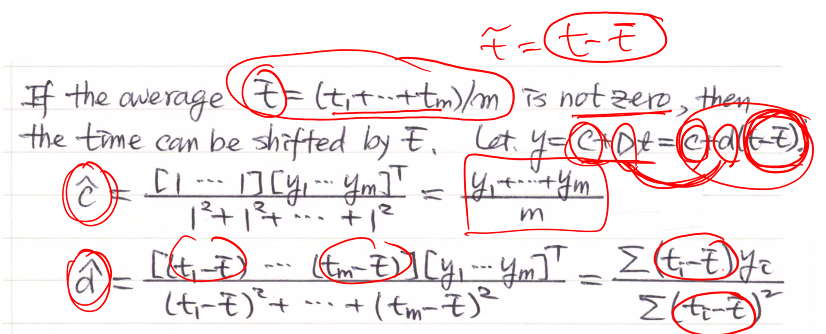 t̃ = t - t̄
If the average t̄ = (t₁+⋯+tₘ)/m is not zero, then
the time can be shifted by t̄. Let y = C+Dt = c+d(t-t̄).
ĉ = [1 ⋯ 1][y₁ ⋯ yₘ]ᵀ / (1²+1²+ ⋯ +1²) = (y₁+⋯+yₘ) / m
d̂ = [(t₁-t̄) ⋯ (tₘ-t̄)][y₁ ⋯ yₘ]ᵀ / ((t₁-t̄)²+ ⋯ +(tₘ-t̄)²) = Σ(tᵢ-t̄)yᵢ / Σ(tᵢ-t̄)²